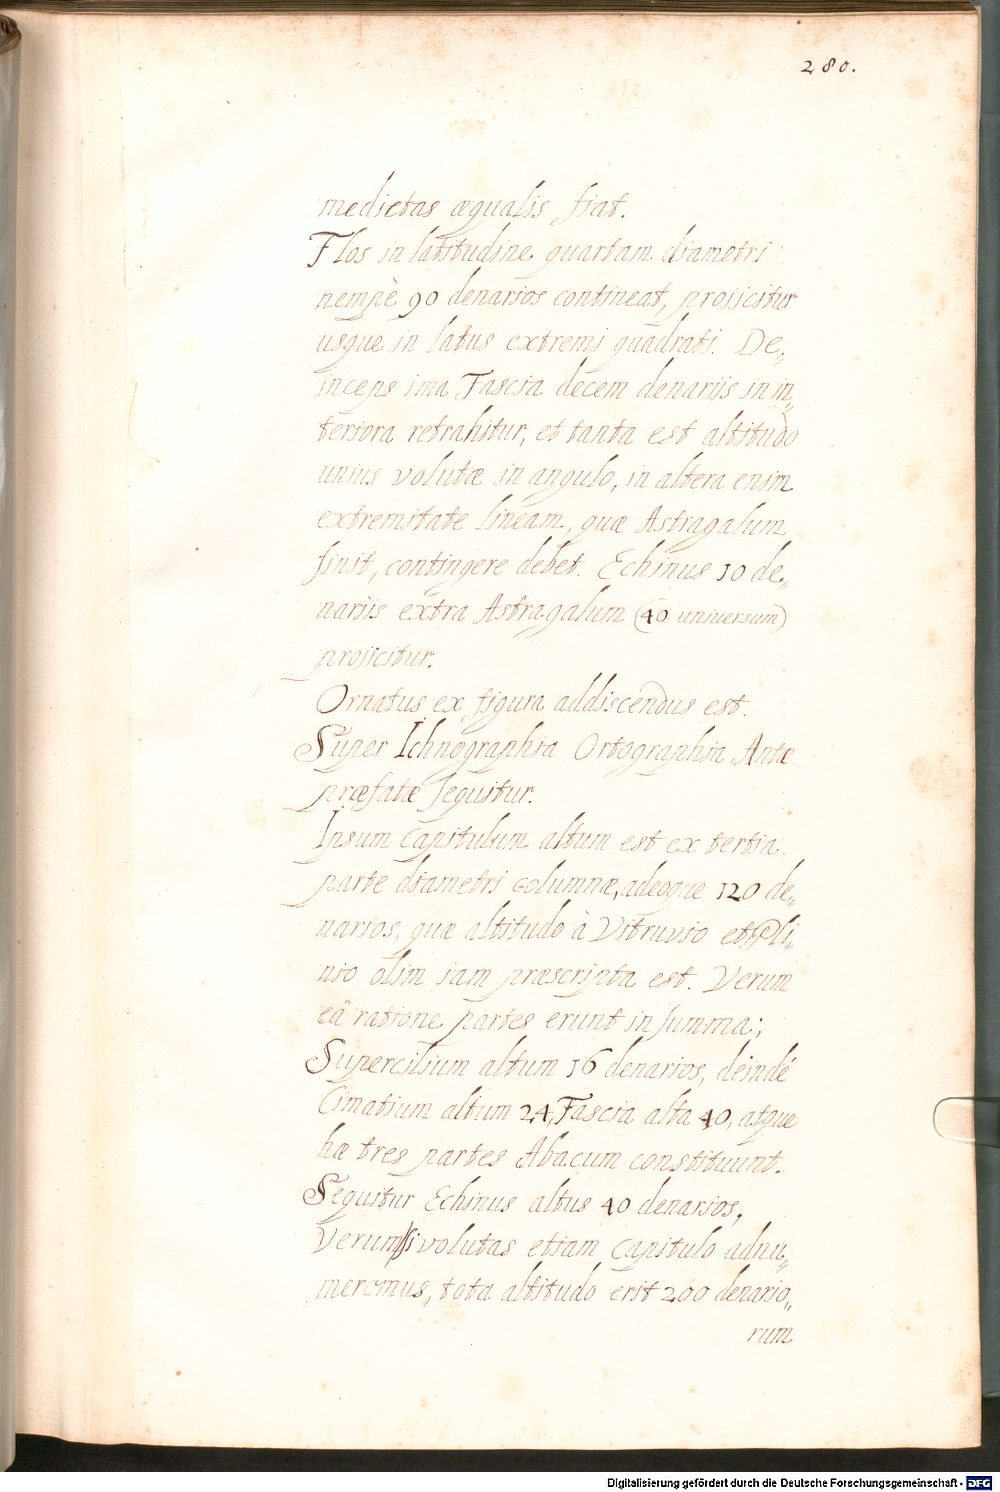 280.
medietas æqualis fiat.
Flos in latitudine quartam diametri
nempè 90 denarios contineat, proijcitur
usque in latus extremj quadrati. De„
inceps ima Fascia decem denariis in in„
teriora retrahitur, et tanta est altitudo
unius volutæ in angulo, in altera enim
extremitate lineam, quæ Astragalum
finit, contingere debet. Echinus 10 de„
nariis extra Astragalum (40 universum)
proijcitur.
Ornatus ex figura addiscendus est.
Super Ichnographia Ortographia Antæ
præfatæ sequitur.
Ipsum Capitulum altum est ex tertia
parte diametri columnæ, adeoque 120 de„
narios, quæ altitudo à Vitruvio et Pli„
nio olim iam præscripta est. Verum
eâ ratione partes erunt in summa;
Supercilium altum 16 denarios, deindé
Cimatium altum 24, Fascia alta 40, atque
hæ tres partes Abacum constituunt.
Sequitur Echinus altus 40 denarios,
Verum si volutas etiam Capitulo adnu„
meremus, tota altitudo erit 200 denario„
rum
Digitalisierung gefördert durch die Deutsche Forschungsgemeinschaft - DFG